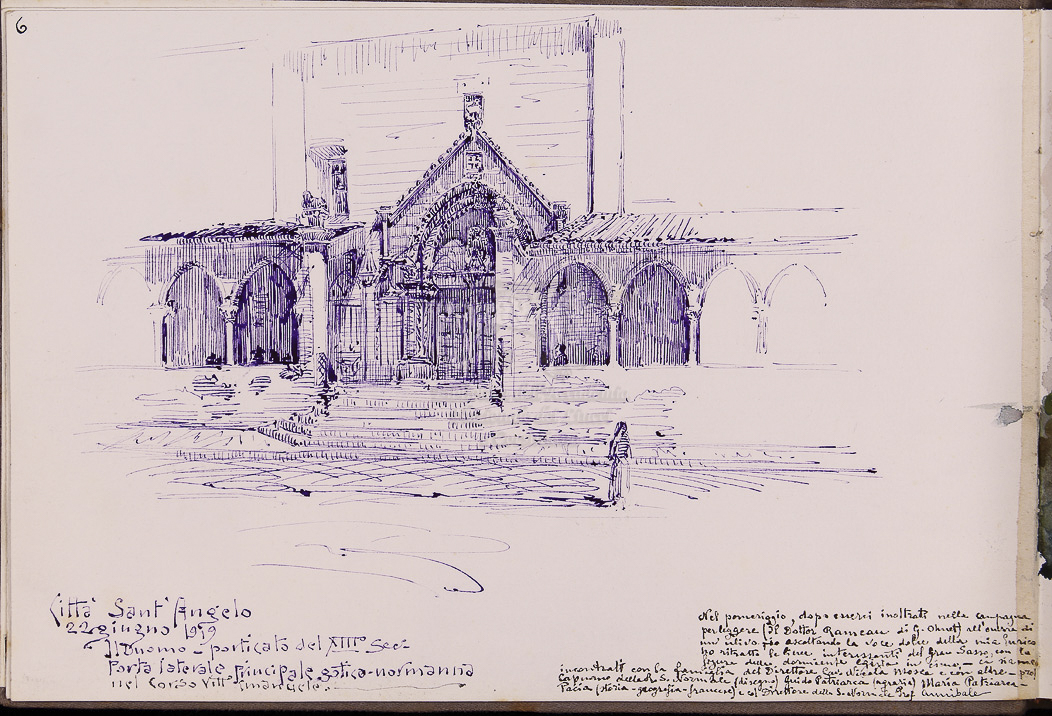 6
Città Sant'Angelo
22 giugno 1919
Il Duomo - porticato del XIII° Sec.
Porta laterale principale gotica-normanna
nel Corso Vitt° Emanuele.
Nel pomeriggio, dopo esserci inoltrati nelle campagne
per leggere (Il Dottor Rameau di G. Ohnet) all'ombra di
un ulivo, ascoltando la voce dolce della mia
ho ritratto le linee interessanti del Gran Sasso, con la
figura della dormiente in cima - ci siamo
incontrati con la famiglia del Direttore Cav. Nicola Mosca e con altre
della R. S. Normale (disegno) Guido Patriarca (agraria) Maria Patriarca-
Pacia (storia-geografia-francese) e col Direttore della S. Normale Prof. Annibale